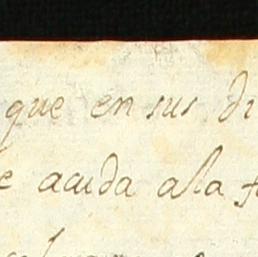 que en sus di
e acuda ala f